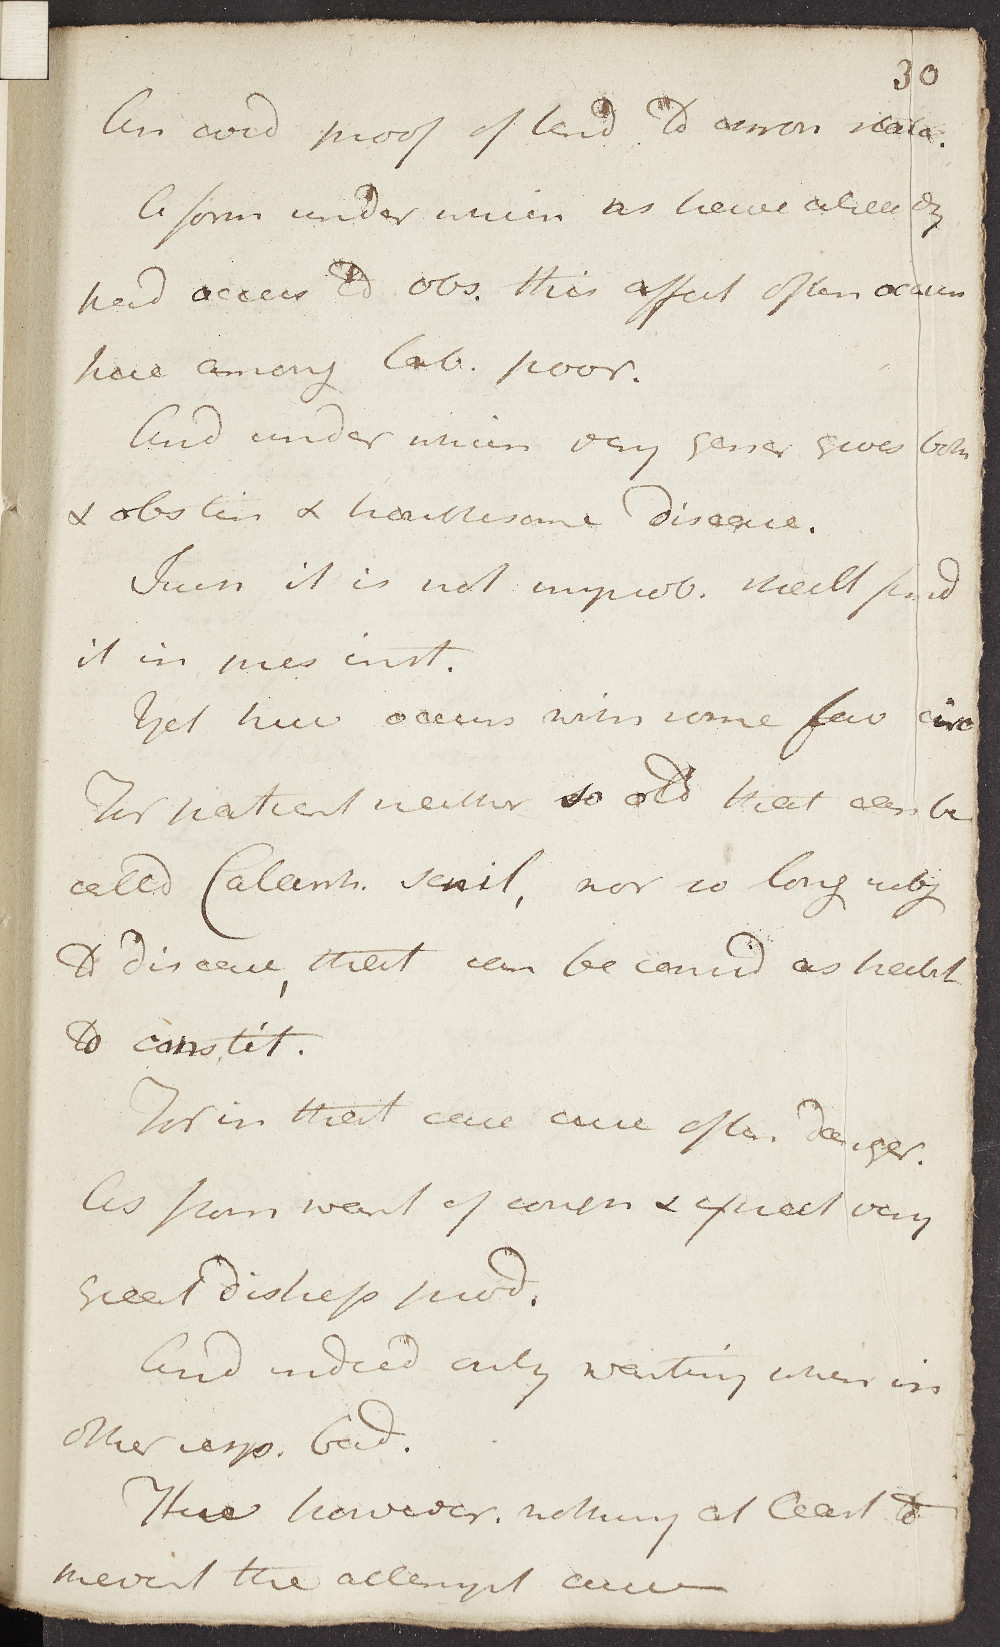 30
An avoid proof of tend to chron state.
A form under which as have already
had occas to obs. this affect often occurs
here among lab. poor.
And under which very gener gives both
& obstin & troublesome disease.
Such it is not improb. shall find
it in pres inst.
Yet here occurs with some fav circ
For patient neither so old that can be
called Catarrh. senil, nor so long subj
to disease, that can be consid as habit
to constit.
For in that case cure often danger.
As from want of cough & expect very
great distress prod.
And indeed only wanting when in
other resp. bad.
Here however. nothing at least to
prevent the attempt cure